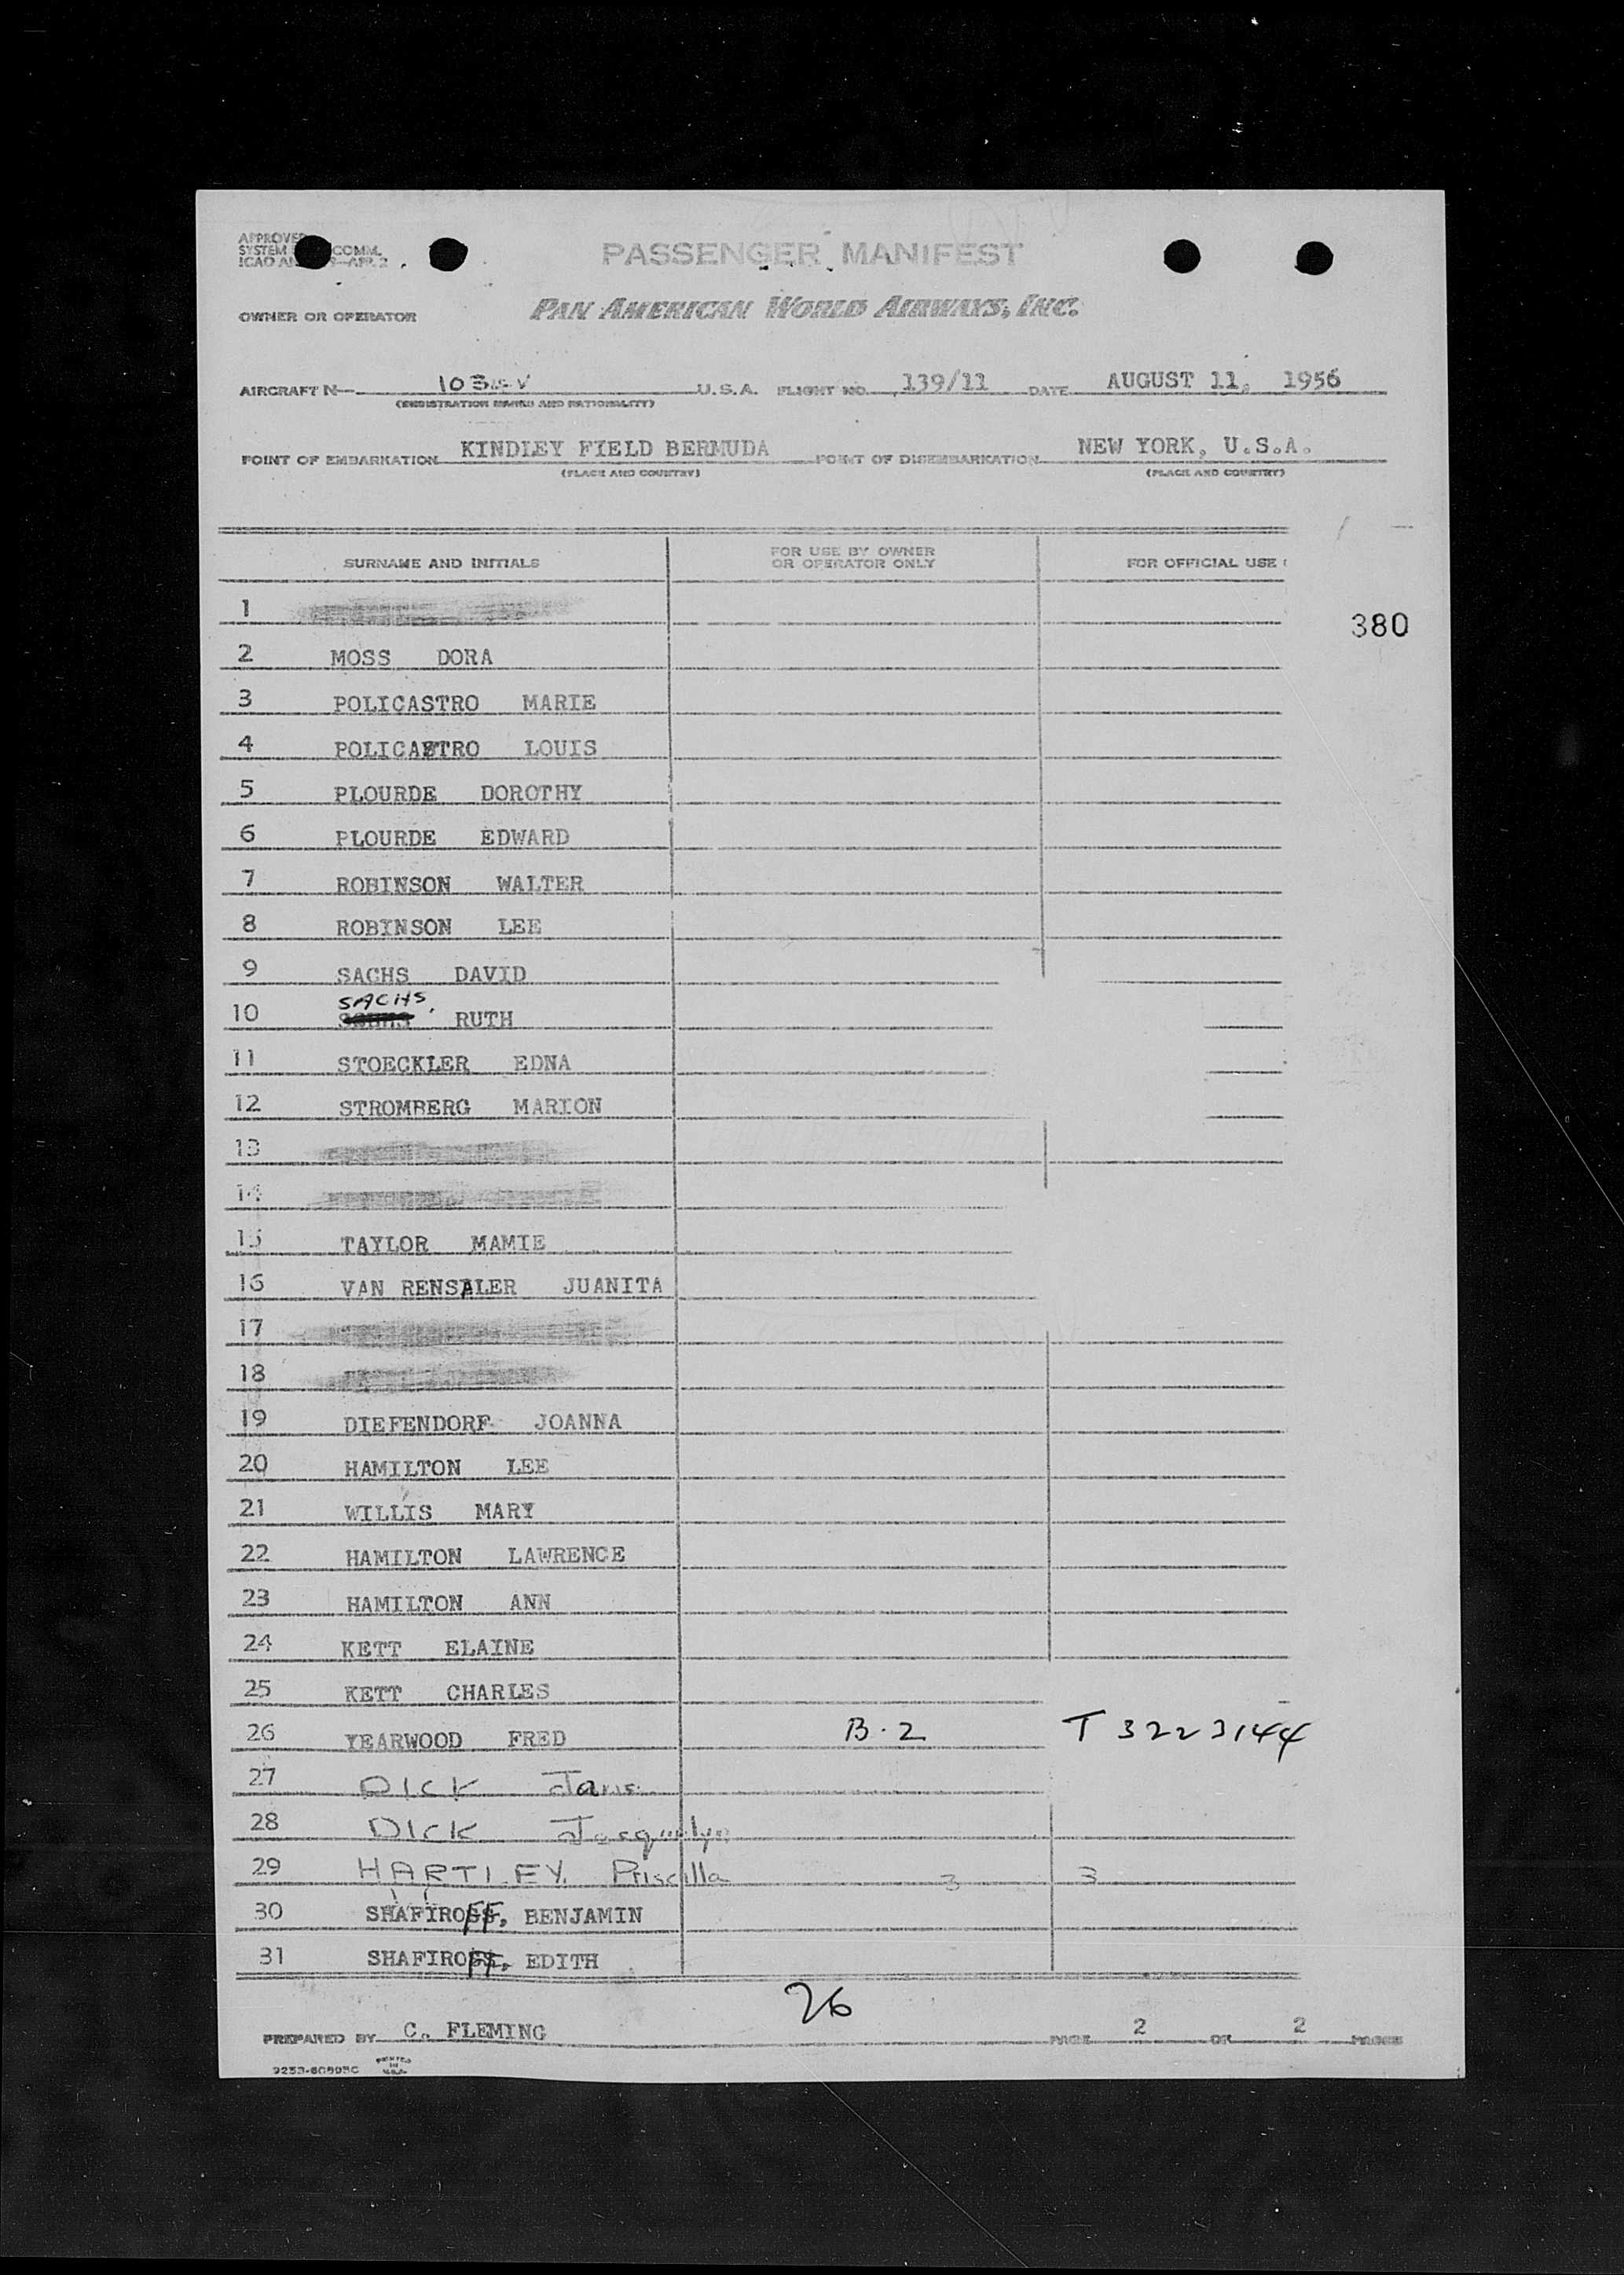 APPROVED
SYSTEM COMM.
ICAO
PASSENGER MANIFEST
OWNER OR OPERATOR PAN AMERICAN WORLD AIRWAYS, INC.
AIRCRAFT N— U.S.A. FLIGHT NO. 139/11 DATE AUGUST 11, 1956
(REGISTRATION MARKS AND NATIONALITY)
POINT OF EMBARKATION KINDLEY FIELD BERMUDA POINT OF DISEMBARKATION NEW YORK, U.S.A.
(PLACE AND COUNTRY) (PLACE AND COUNTRY)
SURNAME AND INITIALS FOR USE BY OWNER OR OPERATOR ONLY FOR OFFICIAL USE
1
380
2 MOSS DORA
3 POLICASTRO MARIE
4 POLICASTRO LOUIS
5 PLOURDE DOROTHY
6 PLOURDE EDWARD
7 ROBINSON WALTER
8 ROBINSON LEE
9 SACHS DAVID
10 SACHS, RUTH
11 STOECKLER EDNA
12 STROMBERG MARION
13
14
15 TAYLOR MAMIE
16 VAN RENSALER JUANITA
17
18
19 DIEFENDORF JOANNA
20 HAMILTON LEE
21 WILLIS MARY
22 HAMILTON LAWRENCE
23 HAMILTON ANN
24 KETT ELAINE
25 KETT CHARLES
26 YEARWOOD FRED B.2 T 3223144
27 DICK
28 DICK Jacquelyn
29 HARTLEY, Priscilla 3 3
30 SHAFIROFF, BENJAMIN
31 SHAFIROFF, EDITH
26
PREPARED BY C. FLEMING PAGE 2 OF 2 PAGES
PRINTED IN U.S.A.